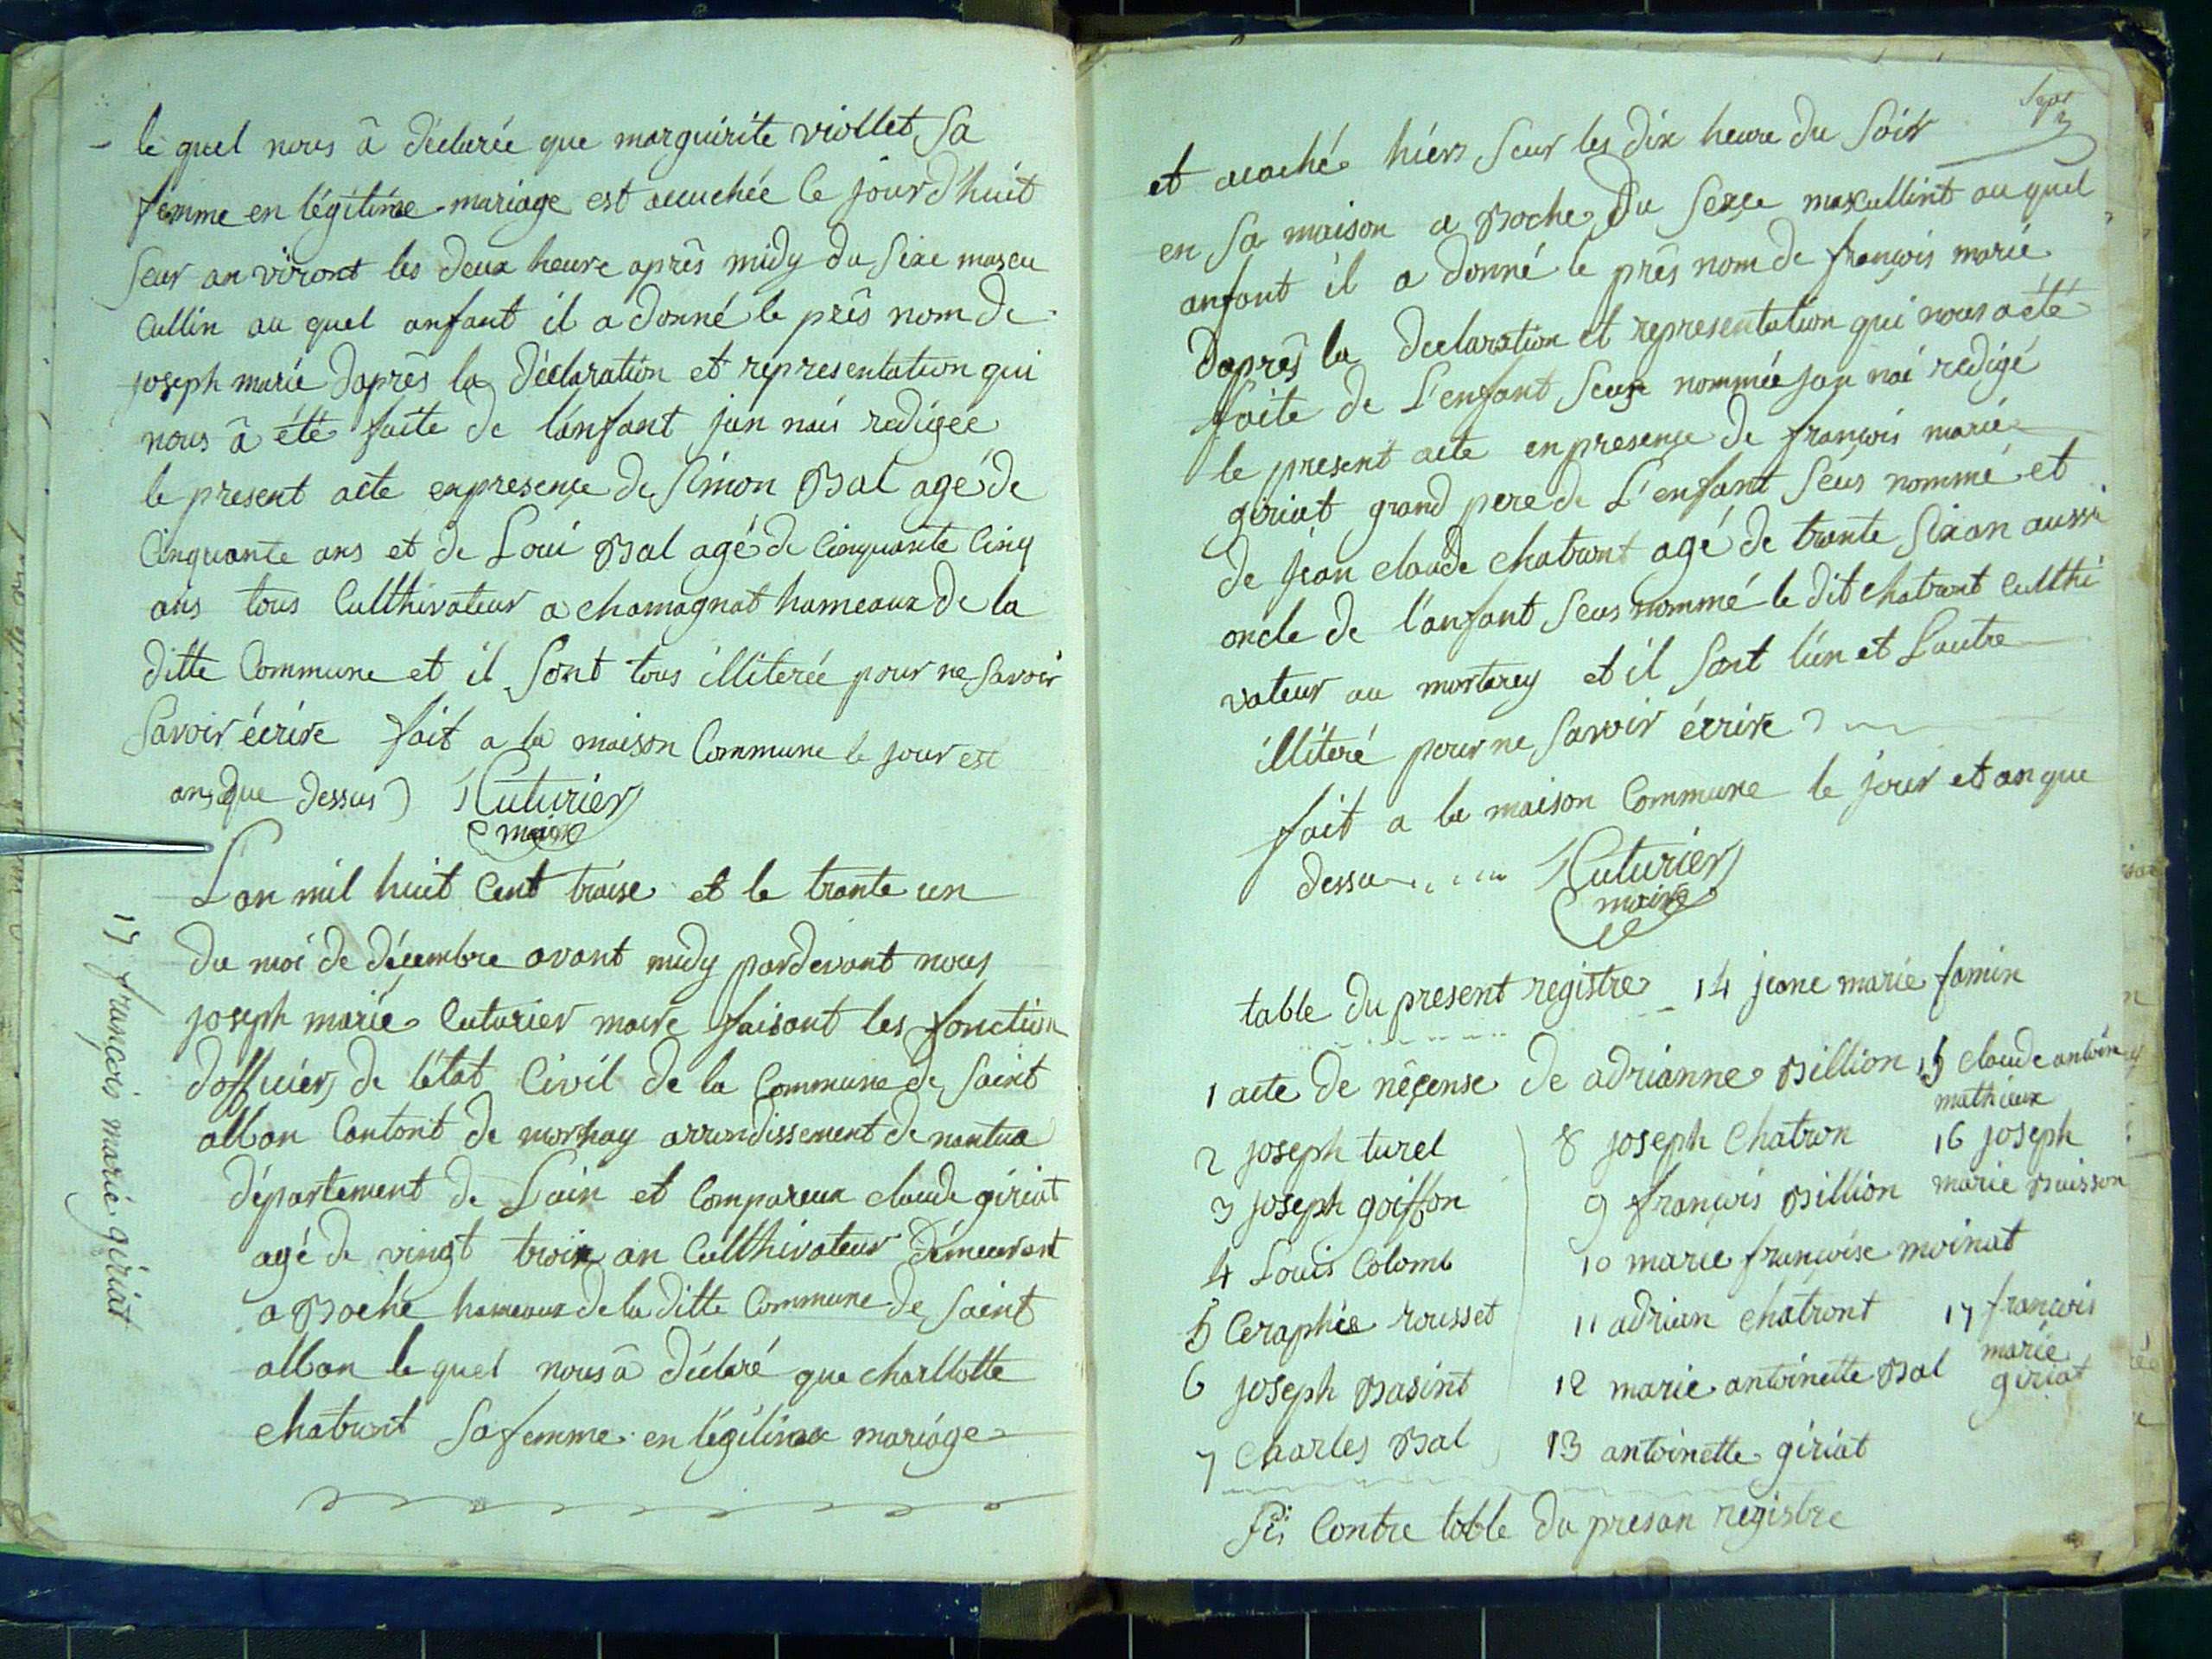 le quel nous â déclarée que marguirite viollet sa
femme en légitime mariage est acuchée le jourd'huit
seur an viront les deux heure après midy du sixe mascu
cullin au quel anfant il a donné le près nom de
joseph marie daprès la déclaration et representation qui
nous â été faite de lanfant jan nai redigée
le present acte enpresençe de simon Bal agé de
Cinquante ans et de Loui Bal agé de Cinquante Cinq
ans tous Cullthivateur a chamagnat hameaux de la
ditte Commune et il sont tous illiterée pour ne savoir
savoir écrire fait a la maison Commune le jour est
an que dessus Cuturier
maire
17 françois marie giriat
Lan mil huit Cent traise et le trante un
du moi de décembre avant midy pardevant nous
joseph marie Cuturier maire faisant les fonction
dofficier de létat Civil de la Commune de saint
alban Cantont de mornay arrundissement de nantua
département de Lain et Compareux claude giriat
agé de vingt troix an Cullthivateur démeurant
a Boche hameaux de la ditte Commune de saint
alban le quel nous â déclaré que charllotte
chatront sa femme en légitime mariage
Sept
et acaché hiers seur les dix heure du soir
en sa maison a Boche du sexe maxcullint au quel
anfant il a donné le près nom de françois marie
daprès la declaration et representation qui nous a été
faite de L'enfant seus nommée jan nai redigé
le present acte enpresençe de françois marie
giriat grand pere de L'enfant seus nommé et
de jean claude chatront agé de trante six an aussi
oncle de l'anfant seus nommé le dit chatront Cullthi
vateur au mortarey et il sont l'un et Lautre
illiteré pour ne savoir écrire
fait a la maison Commune le jour et an que
dessu Cuturier
maire
table du present registre 14 jeane marie famin
1 acte de nêçense de adrianne Billion 15 claude antoine
mathieux
2 joseph turel 8 joseph Chatron 16 joseph
3 joseph goiffon 9 françois Billion marie Buisson
4 Louis Colomb 10 marie françoise moinat
5 Ceraphie rousset 11 adrian chatront 17 françois
marie
6 joseph Basint 12 marie antoinette Bal giriat
7 Charles Bal 13 antoinette giriat
Si Contre table du presan registre